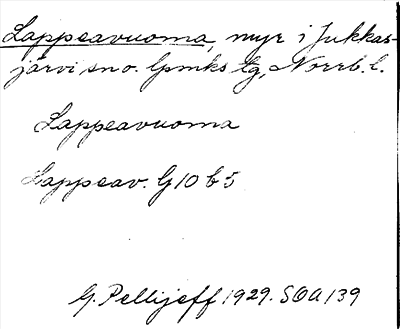 Lappeavuoma, myr i Jukkas-
järvi sn o. lpmks tg, Norrb. l.
Lappeavuoma
Lappeav. G10 b5
G. Pellijeff 1929. SOA 139